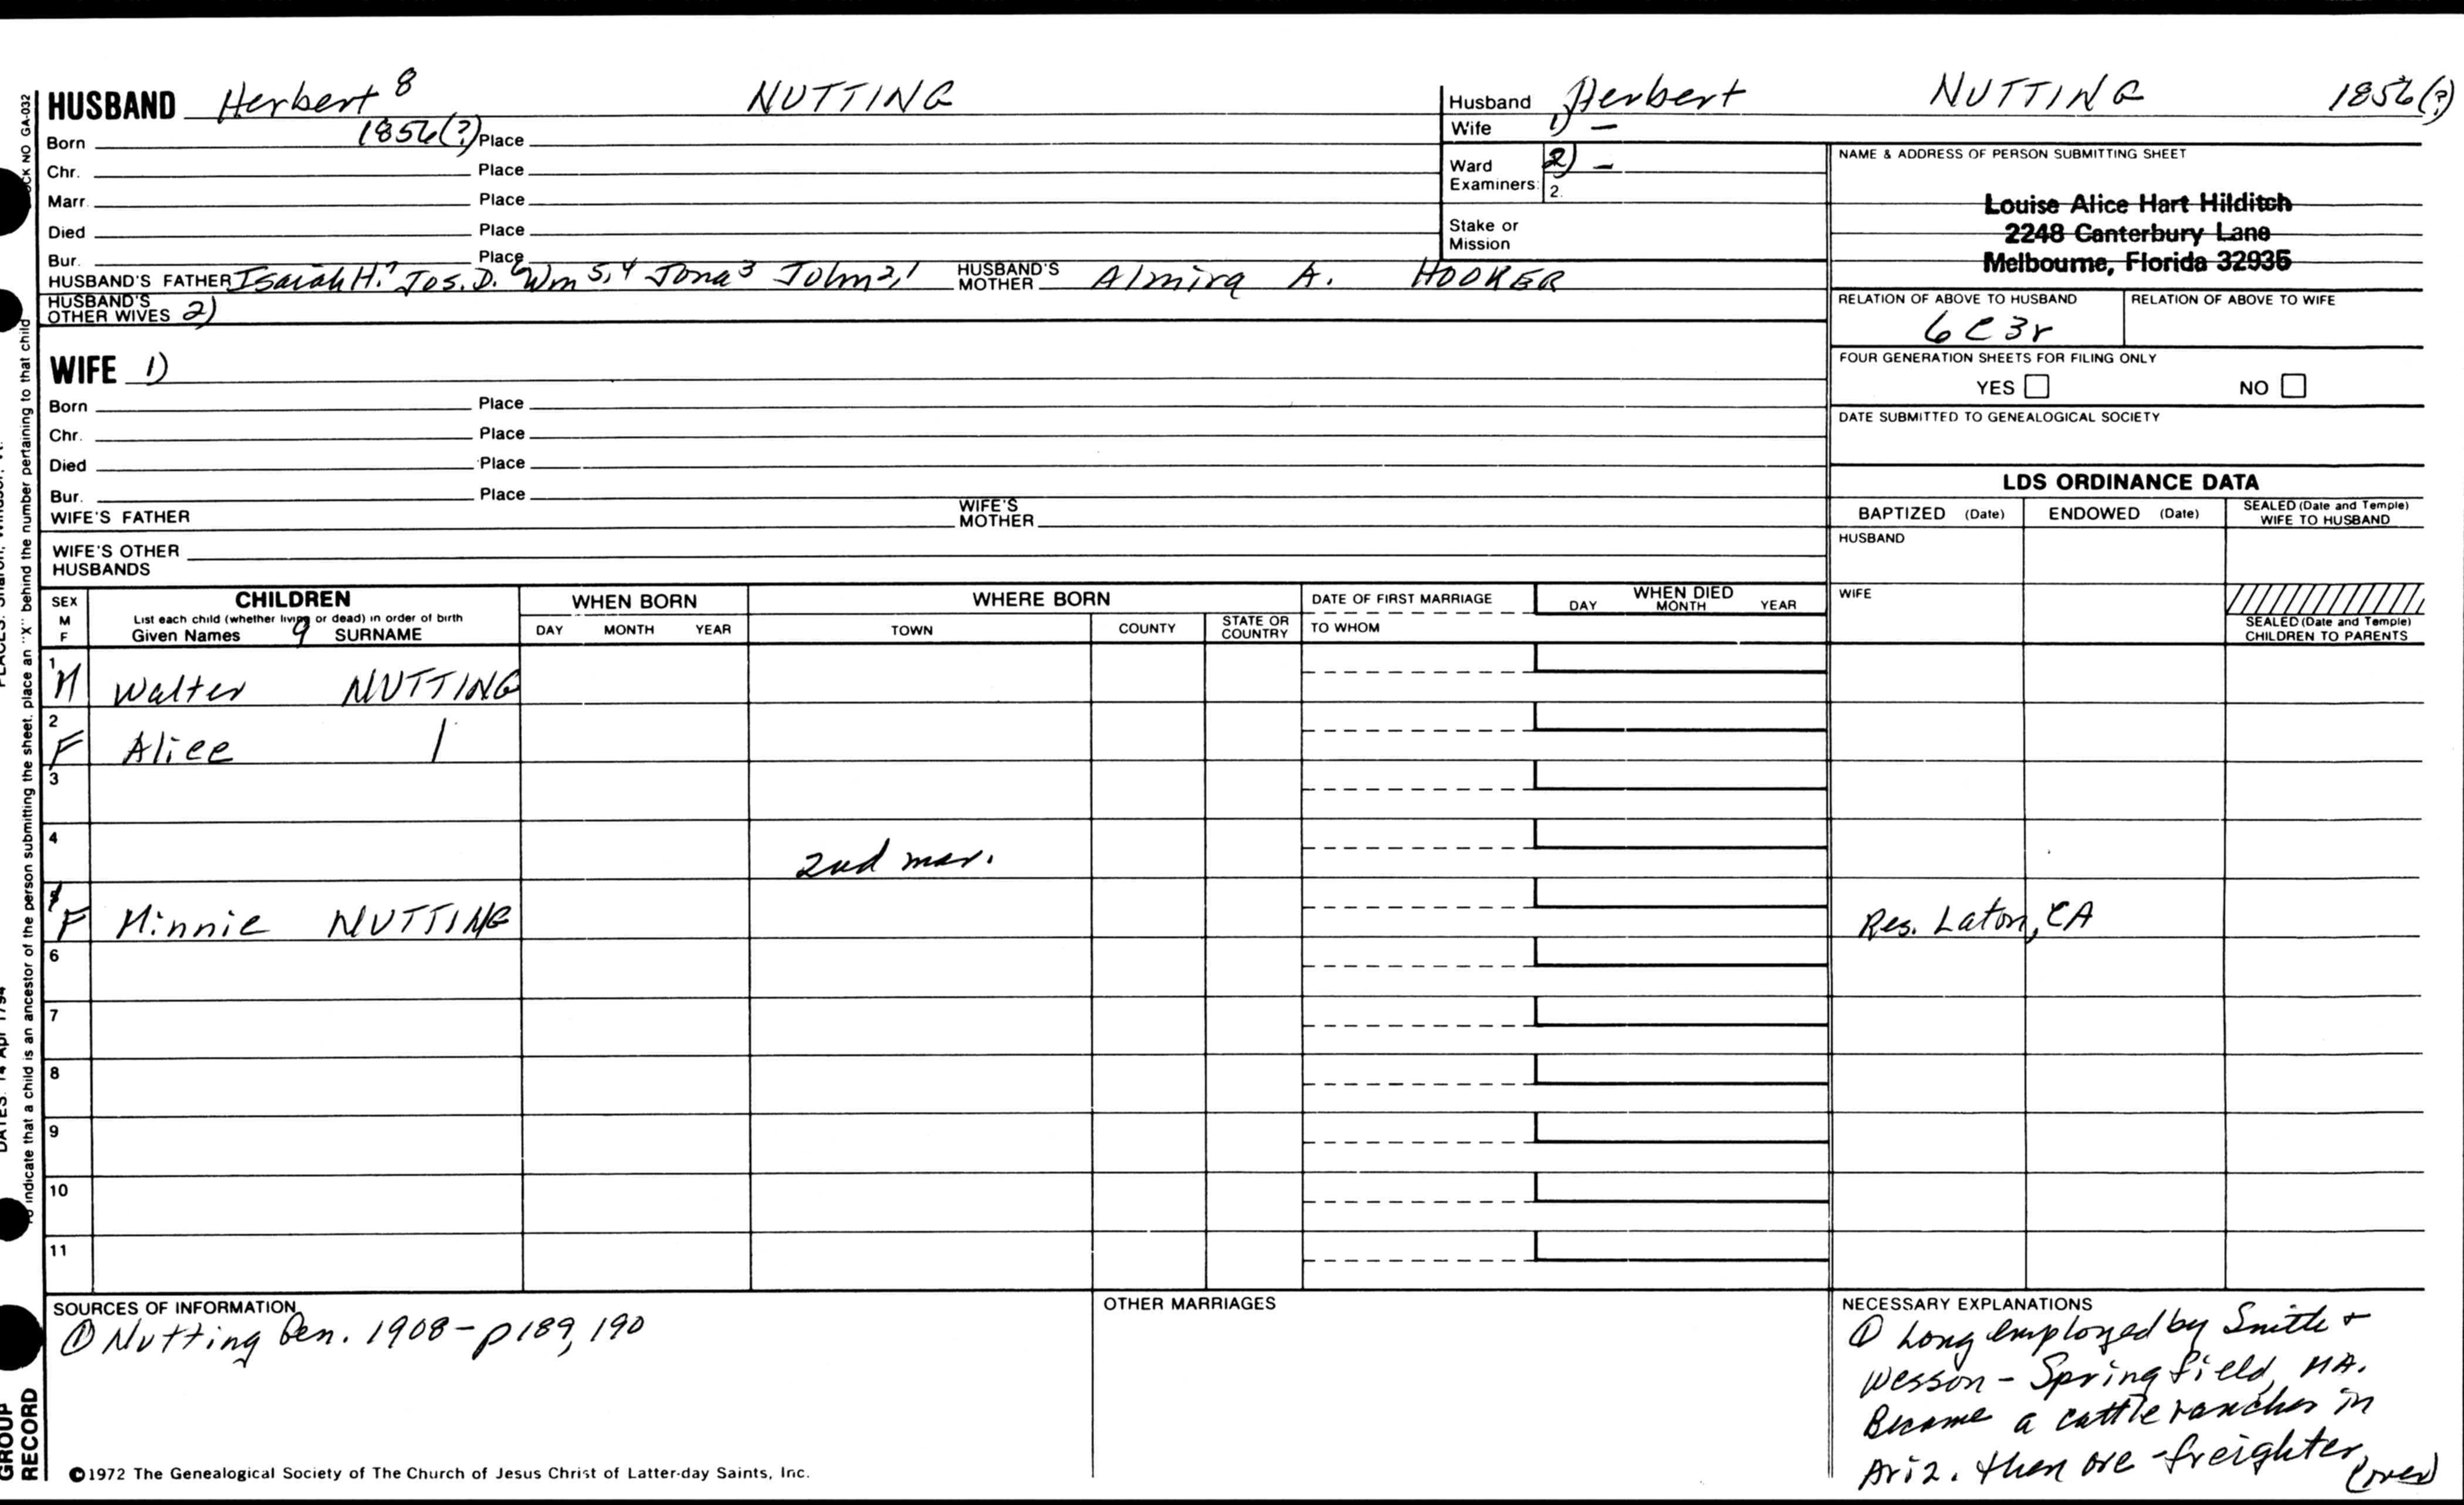 HUSBAND Herbert 8 NUTTING
Born 1856(?) Place
Chr. Place
Marr. Place
Died Place
Bur. Place
HUSBAND'S FATHER Isaiah H.7 Jos. D.6 Wm 5,4 Jona3 John2,1 HUSBAND'S MOTHER Almira A. HOOKER
HUSBAND'S OTHER WIVES 2)
WIFE 1)
Born Place
Chr. Place
Died Place
Bur. Place
WIFE'S FATHER WIFE'S MOTHER
WIFE'S OTHER HUSBANDS
Husband Herbert NUTTING 1856(?)
Wife 1) –
Ward Examiners: 2) –
2.
Stake or Mission
NAME & ADDRESS OF PERSON SUBMITTING SHEET
Louise Alice Hart Hilditch
2248 Canterbury Lane
Melbourne, Florida 32935
RELATION OF ABOVE TO HUSBAND RELATION OF ABOVE TO WIFE
6C3r
FOUR GENERATION SHEETS FOR FILING ONLY
YES NO
DATE SUBMITTED TO GENEALOGICAL SOCIETY
LDS ORDINANCE DATA
BAPTIZED (Date) ENDOWED (Date) SEALED (Date and Temple) WIFE TO HUSBAND
HUSBAND
WIFE
SEALED (Date and Temple) CHILDREN TO PARENTS
SEX M F
CHILDREN
List each child (whether living or dead) in order of birth
Given Names 9 SURNAME
WHEN BORN
DAY MONTH YEAR
WHERE BORN
TOWN COUNTY STATE OR COUNTRY
DATE OF FIRST MARRIAGE
TO WHOM
WHEN DIED
DAY MONTH YEAR
1 M Walter NUTTING
2 F Alice |
3
4 2nd mar.
F Minnie NUTTING Res. Laton, CA
6
7
8
9
10
11
SOURCES OF INFORMATION
① Nutting Gen. 1908 – p189, 190
OTHER MARRIAGES
NECESSARY EXPLANATIONS
① Long employed by Smith +
Wesson – Springfield, MA.
Became a cattle rancher in
Ariz. then ore-freighter
(over)
©1972 The Genealogical Society of The Church of Jesus Christ of Latter-day Saints, Inc.
CK NO GA-032
To indicate that a child is an ancestor of the person submitting the sheet, place an "X" behind the number pertaining to that child
DATES: 14 Apr 1794
GROUP
RECORD